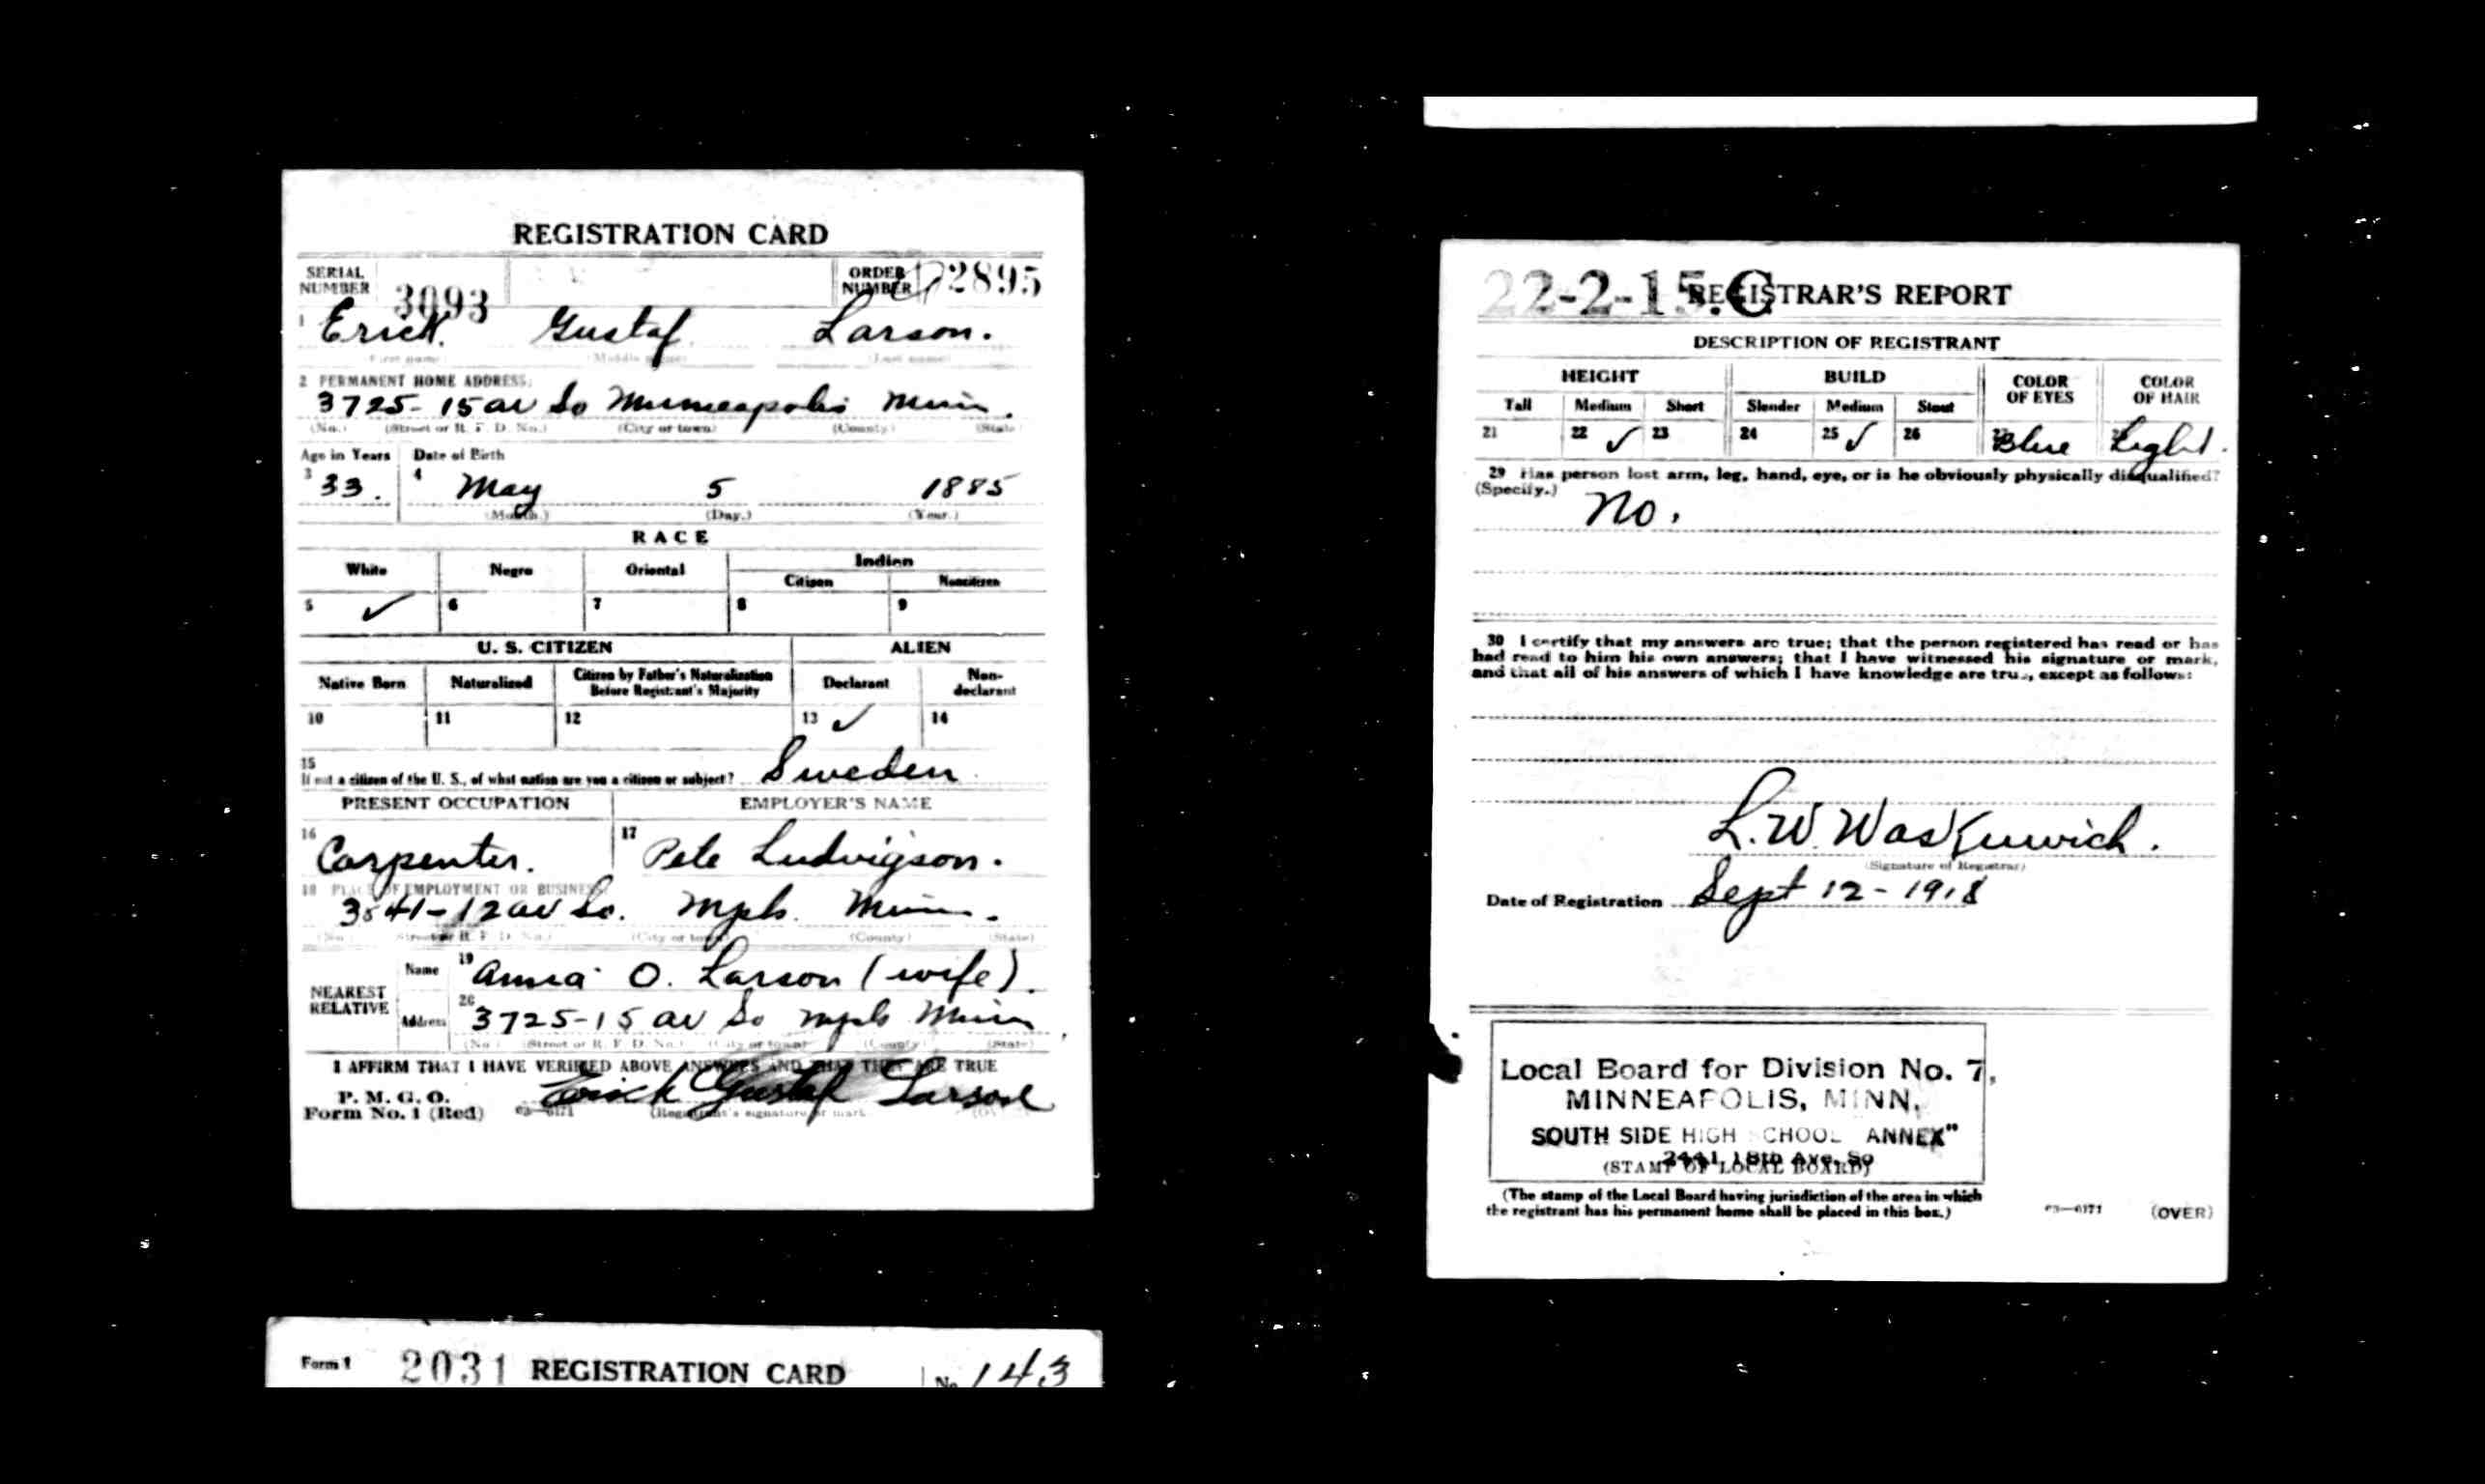 REGISTRATION CARD
SERIAL NUMBER 3093 ORDER NUMBER 2895
1 Erick Gustaf Larson.
(First name) (Middle name) (Last name)
2 PERMANENT HOME ADDRESS:
3725 - 15 av So Minneapolis Minn.
(No.) (Street or R. F. D. No.) (City or town) (County) (State)
Age in Years Date of Birth
3 33. 4 May 5 1885
(Month.) (Day.) (Year.)
RACE
White Negro Oriental Indian
Citizen Noncitizen
5 ✓ 6 7 8 9
U. S. CITIZEN ALIEN
Native Born Naturalized Citizen by Father's Naturalization Before Registrant's Majority Declarant Non-declarant
10 11 12 13 ✓ 14
15
If not a citizen of the U. S., of what nation are you a citizen or subject? Sweden
PRESENT OCCUPATION EMPLOYER'S NAME
16 Carpenter. 17 Pete Ludvigson.
18 PLACE OF EMPLOYMENT OR BUSINESS:
12 av So. Mpls. Minn.
(No.) (Street or R. F. D. No.) (City or town) (County) (State)
NEAREST RELATIVE
Name 19 Anna O. Larson (wife).
Address 20 3725-15 av So Mpls Minn
(No.) (Street or R. F. D. No.) (City or town) (County) (State)
I AFFIRM THAT I HAVE VERIFIED ABOVE ANSWERS AND THAT THEY ARE TRUE
P. M. G. O.
Form No. 1 (Red) 03—6171 Erick Gustaf Larson
(Registrant's signature or mark
Form 1 2031 REGISTRATION CARD No. 143
22-2-15.C REGISTRAR'S REPORT
DESCRIPTION OF REGISTRANT
HEIGHT BUILD COLOR OF EYES COLOR OF HAIR
Tall Medium Short Slender Medium Stout
21 22 ✓ 23 24 25 ✓ 26 Blue Light.
29 Has person lost arm, leg, hand, eye, or is he obviously physically disqualified?
(Specify.) No.
30 I certify that my answers are true; that the person registered has read or has
had read to him his own answers; that I have witnessed his signature or mark,
and that all of his answers of which I have knowledge are true, except as follows:
L. W.
(Signature of Registrar)
Date of Registration Sept 12 - 1918
Local Board for Division No. 7,
MINNEAPOLIS, MINN.
SOUTH SIDE HIGH SCHOOL ANNEX"
2441 18th Ave. So
(STAMP OF LOCAL BOARD)
(The stamp of the Local Board having jurisdiction of the area in which
the registrant has his permanent home shall be placed in this box.)
03—6171 (OVER)